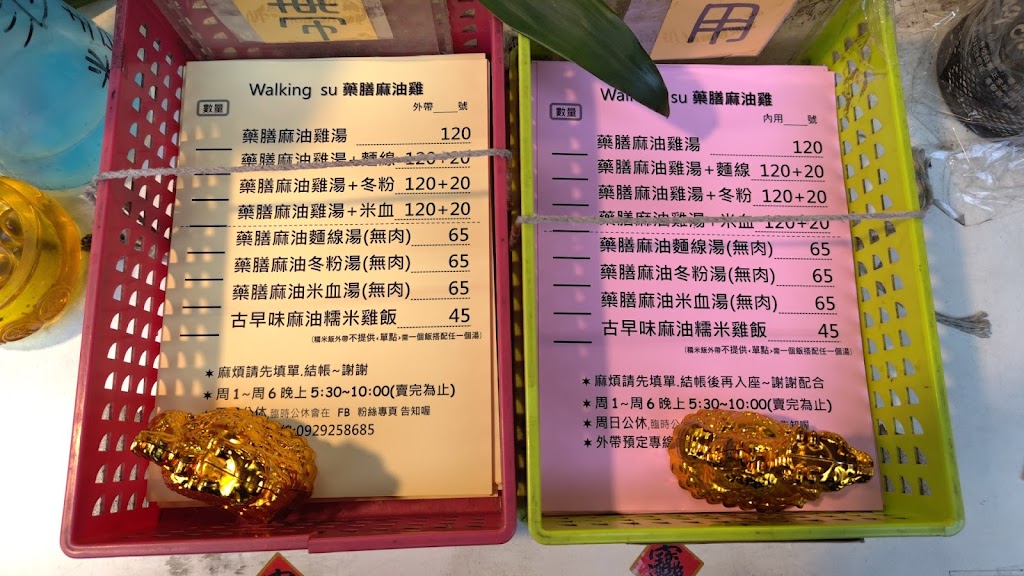 帶
Walking su 藥膳麻油雞
數量
外帶____號
藥膳麻油雞湯 120
藥膳麻油雞湯+麵線 120+20
藥膳麻油雞湯+冬粉 120+20
藥膳麻油雞湯+米血 120+20
藥膳麻油麵線湯(無肉) 65
藥膳麻油冬粉湯(無肉) 65
藥膳麻油米血湯(無肉) 65
古早味麻油糯米雞飯 45
(糯米飯外帶不提供◊單點◊需一個飯搭配任一個湯)
✶麻煩請先填單.結帳~謝謝
✶周1~周6晚上5:30~10:00(賣完為止)
公休.臨時公休會在 FB 粉絲專頁 告知喔
:0929258685
用
Walking su 藥膳麻油雞
數量
內用____號
藥膳麻油雞湯 120
藥膳麻油雞湯+麵線 120+20
藥膳麻油雞湯+冬粉 120+20
藥膳麻油雞湯+米血 120+20
藥膳麻油麵線湯(無肉) 65
藥膳麻油冬粉湯(無肉) 65
藥膳麻油米血湯(無肉) 65
古早味麻油糯米雞飯 45
(糯米飯外帶不提供◊單點◊需一個飯搭配任一個湯)
✶麻煩請先填單.結帳後再入座~謝謝配合
✶周1~周6晚上5:30~10:00(賣完為止)
✶周日公休.臨時公 告知喔
✶外帶預定專線